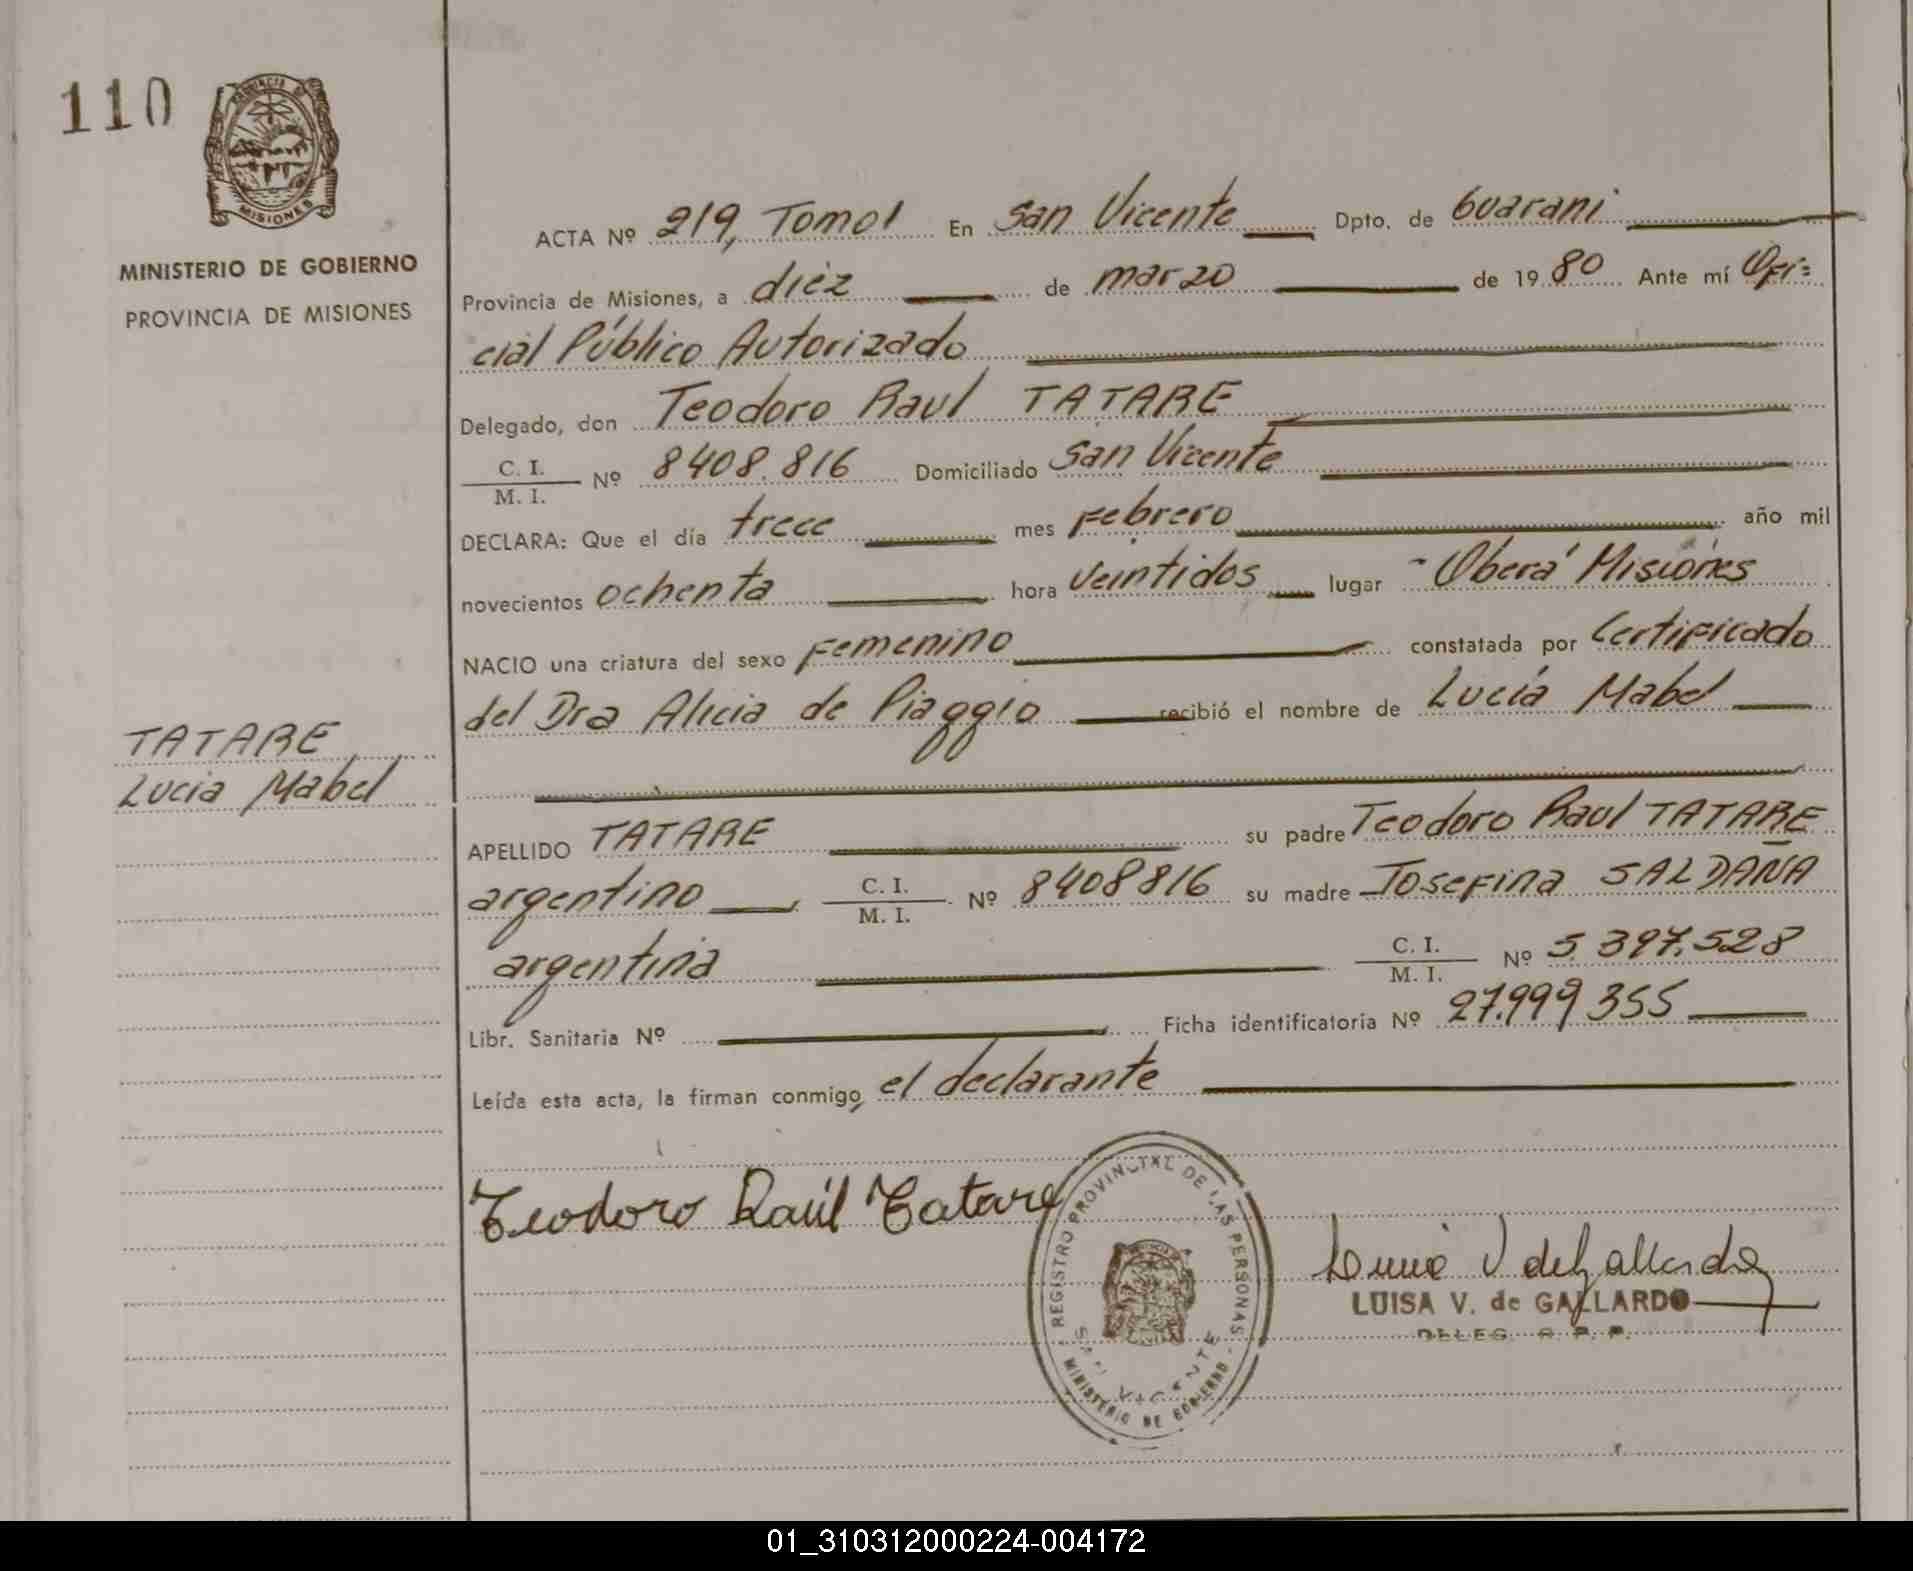 110
PROVINCIA DE
MISIONES
MINISTERIO DE GOBIERNO
PROVINCIA DE MISIONES
ACTA Nº 219, Tomo I En San Vicente Dpto. de Guarani
Provincia de Misiones, a diez de marzo de 1980 Ante mí Ofi=
cial Público Autorizado
Delegado, don Teodoro Raul TATARE
C. I.
M. I. Nº 8408.816 Domiciliado San Vicente
DECLARA: Que el día trece mes Febrero año mil
novecientos ochenta hora veintidos lugar Oberá Misiones
NACIO una criatura del sexo Femenino constatada por Certificado
del Dra Alicia de Piaggio recibió el nombre de Lucía Mabel
TATARE
Lucia Mabel
APELLIDO TATARE su padre Teodoro Raul TATARE
argentino C. I.
M. I. Nº 8408816 su madre Josefina SALDAÑA
argentina C. I.
M. I. Nº 5.397.528
Libr. Sanitaria Nº Ficha identificatoria Nº 27.999355
Leída esta acta, la firman conmigo, el declarante
Teodoro Raúl Tatare
REGISTRO PROVINCIAL DE LAS PERSONAS
SAN VICENTE
MINISTERIO DE GOBIERNO
Luisa V de Gallardo
LUISA V. de GALLARDO
DELEG. R. P. P.
01_310312000224-004172